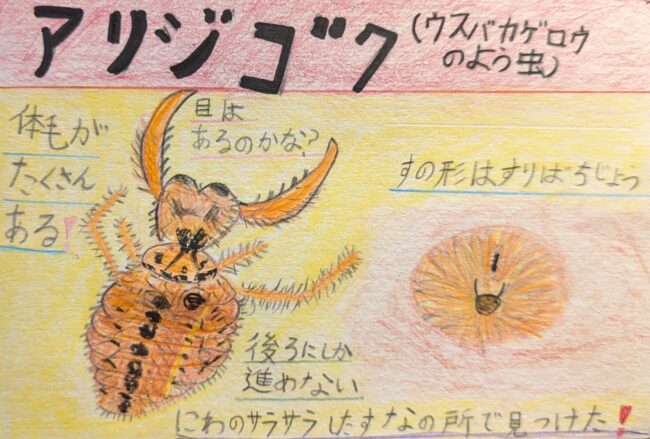 アリジゴク(ウスバカゲロウ
のよう虫)
体毛が
たくさん
ある!
目は
あるのかな?
すの形はすりばちじょう
後ろにしか
進めない
にわのサラサラしたすなの所で見つけた!